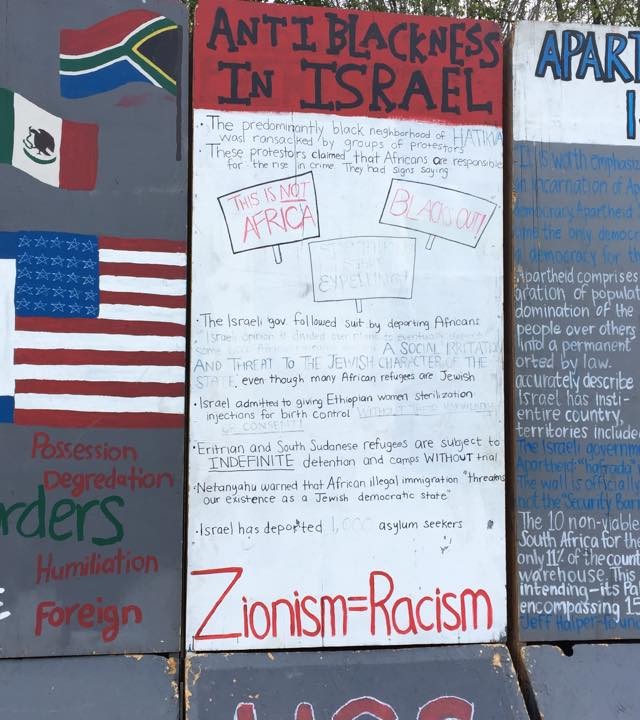 ANTI BLACKNESS
IN ISRAEL
• The predominantly black neghborhood of HATIKVA
was ransacked by groups of protestors
• These protestors claimed that Africans are responsible
for the rise in crime. They had signs saying
THIS IS NOT
AFRICA
BLACKS OUT!
EXPELLING!
• The Israeli gov. followed suit by deporting Africans
A SOCIAL IRRITATION
AND THREAT TO THE JEWISH CHARACTER OF THE
STATE, even though many African refugees are Jewish
• Israel admitted to giving Ethiopian women sterilization
injections for birth control WITHOUT THEIR KNOWLEDGE
OF CONSENT
• Eritrian and South Sudanese refugees are subject to
INDEFINITE detention and camps WITHOUT trial
• Netanyahu warned that African illegal immigration "threatens
our existence as a Jewish democratic state"
• Israel has deported 1,000 asylum seekers
Zionism=Racism
Possession
Degredation
rders
Humiliation
Foreign
E
APART
I
It is worth emphasiz
an incarnation of A
democracy. Apartheid
the only democr
a democracy for th
Apartheid comprises
aration of populat
domination of the
people over others
into a permanent
orted by law.
accurately describe
Israel has insti-
entire country,
territories include
The Israeli governm
Apartheid: "hafrada"
The wall is officiall
not the "Security Barr
The 10 non-viable
South Africa for the
only 11% of the count
warehouse. This
intending-its Pal
encompassing 15
Jeff Halper-found